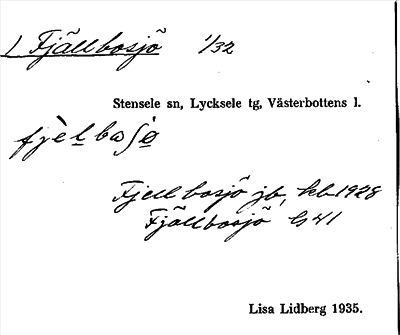 1 Fjällbosjö 1/32
Stensele sn, Lycksele tg, Västerbottens l.
fjèlbɷʃø
Fjellbosjö jb, kb 1928
Fjällbosjö GS 41
Lisa Lidberg 1935.